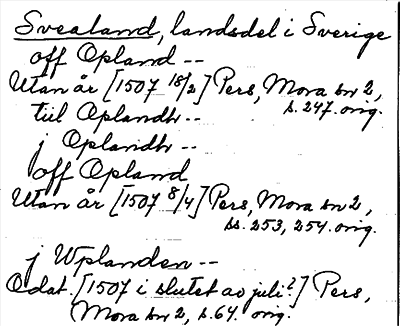 Svealand, landsdel i Sverige
off Opland --
Utan år [1507 18/2] Pers, Mora bn 2,
s. 247. orig.
till Oplandh --
j Oplandh --
off Opland
Utan år [1507 8/4] Pers, Mora bn 2,
ss. 253, 254. orig.
j Wplanden --
Odat. [1507 i slutet av juli?] Pers,
Mora bn 2, s. 64. orig.